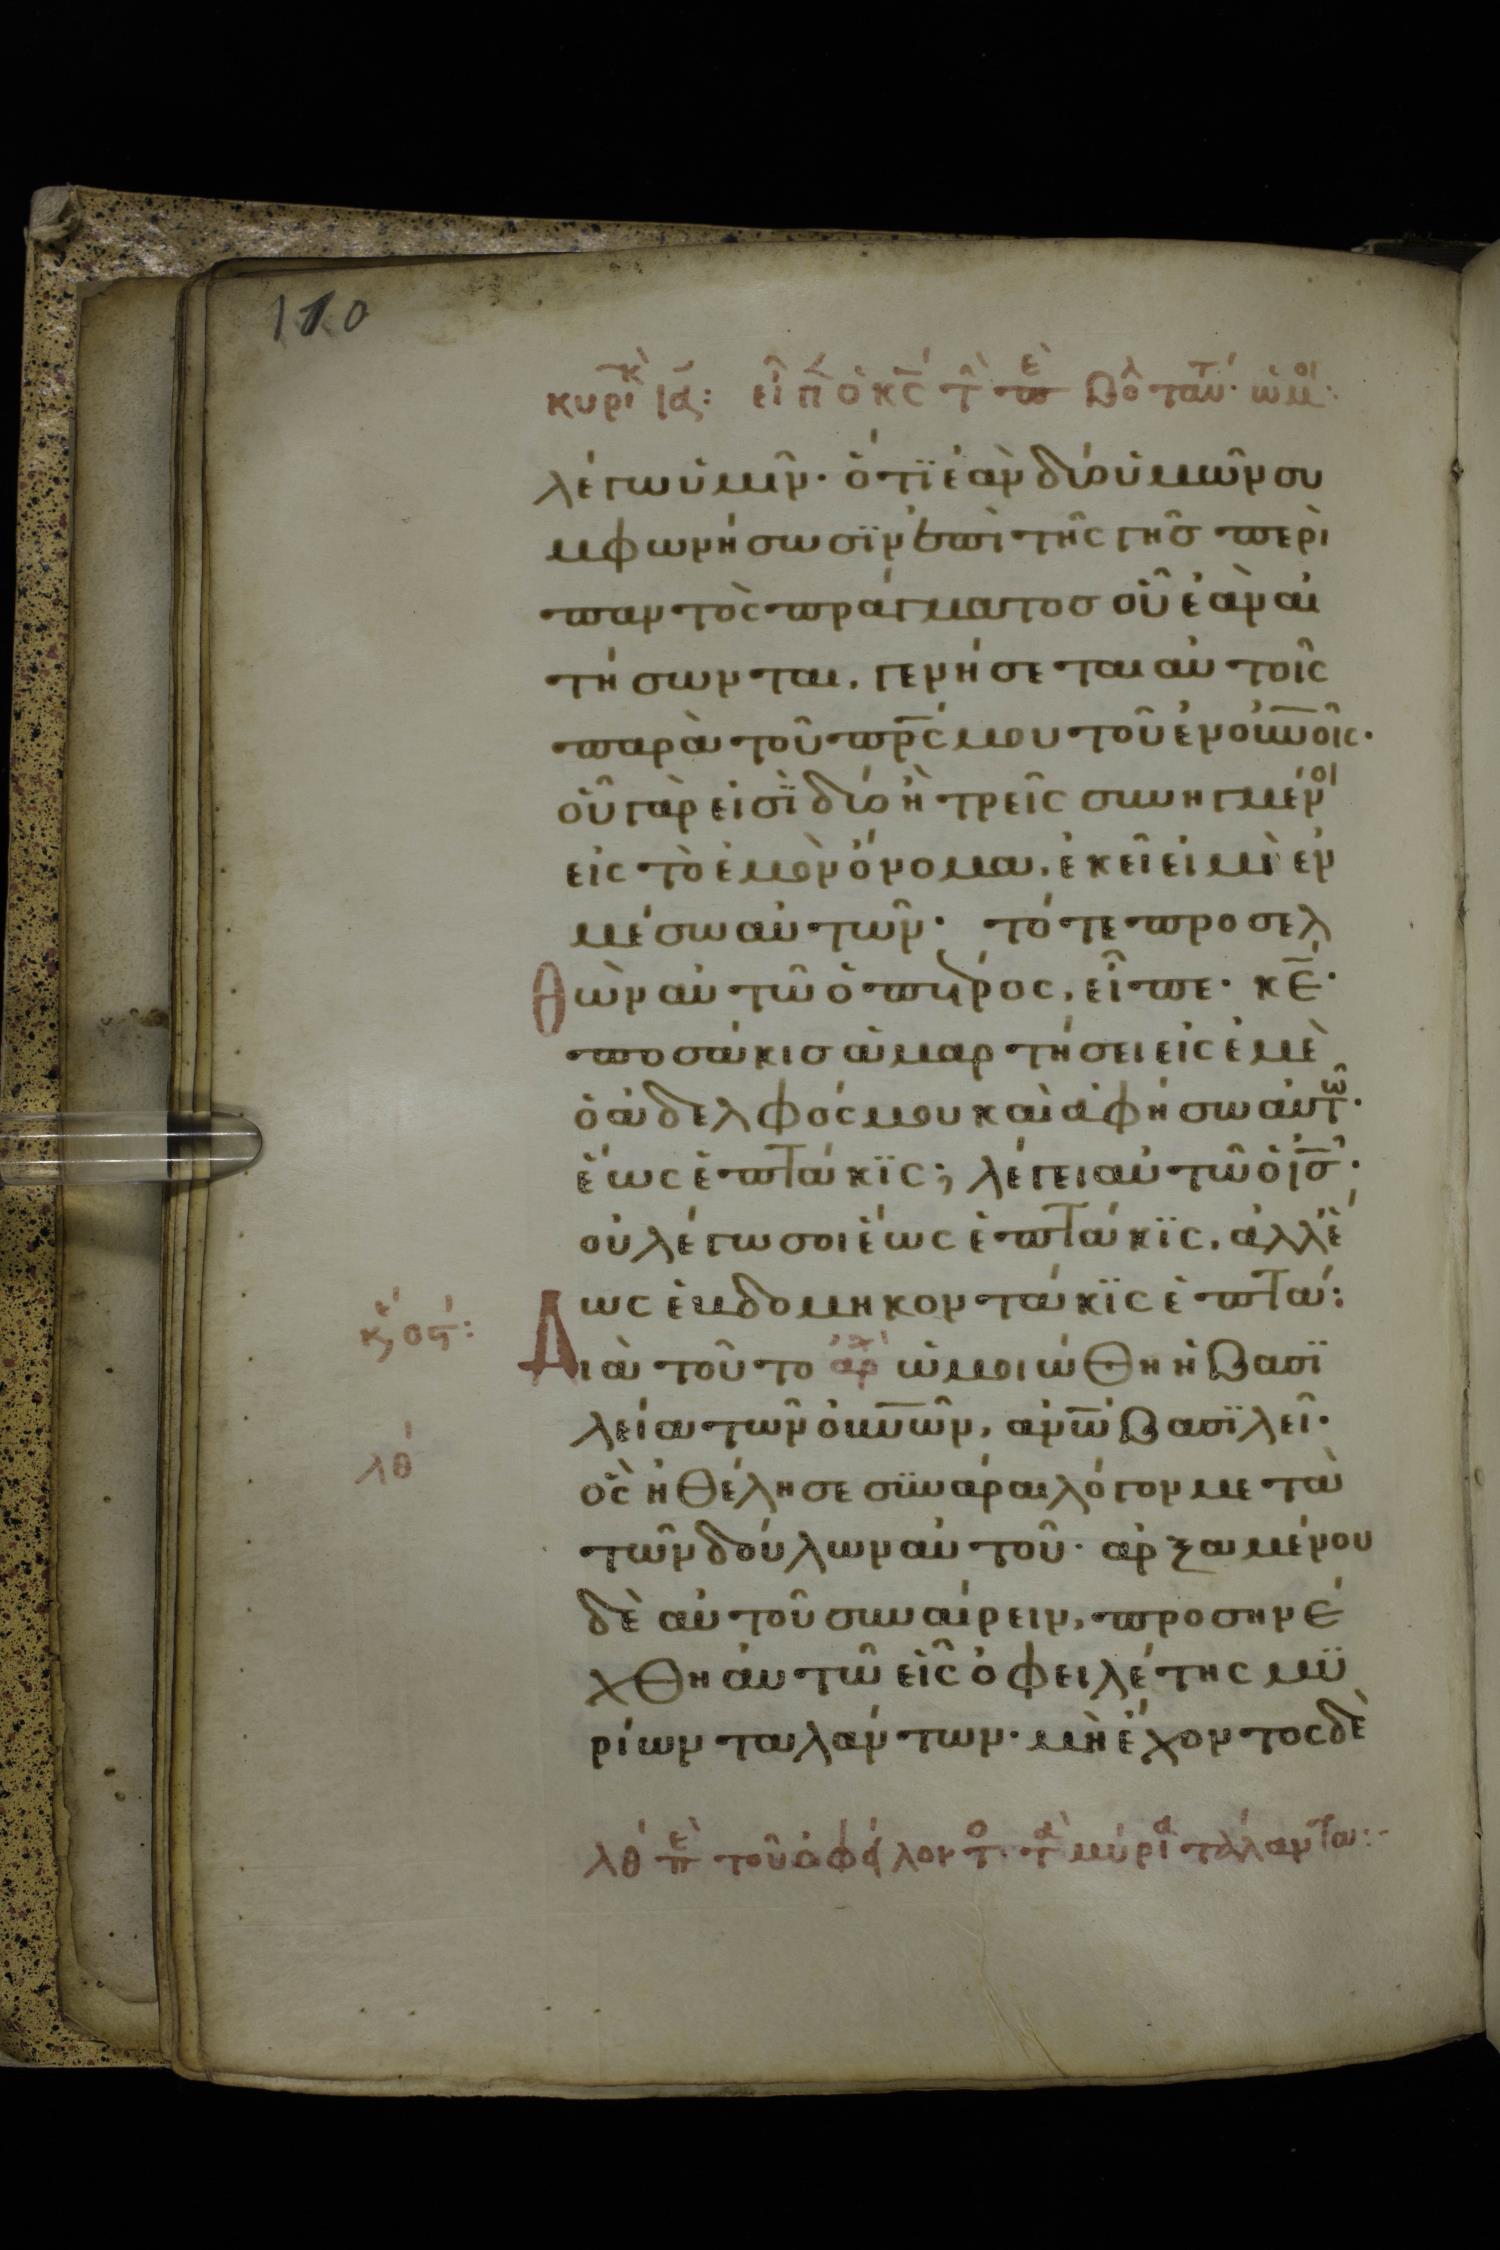 110
κυρικ ια: εἶπ ὁ κς τ π βολ ταυτ· ὡμοι:
λέγω ὑμῖν· ὅτϊ ἐὰν δύο ὑμῶν συ
μφωνήσωσϊν ἐπὶ τῆς γῆσ περὶ
παντὸς πράγματοσ οὗ ἐὰν αἰ
τήσωνται, γενήσεται αὐτοῖς
παρὰ τοῦ πρς μου τοῦ ἐν οὐνοῖς·
οὗ γάρ εἰσϊ δύο ἢ τρεῖς συνηγμένοι
εἰς τὸ ἐμὸν ὄνομα, ἐκεῖ εἰμὶ ἐν
μέσω αὐτῶν· τότε προσελ
θὼν αὐτῶ ὁ πέτρος, εἶπε· κε·
ποσάκισ ἁμαρτήσει εἰς ἐμὲ
ὁ ἀδελφός μου καὶ ἀφήσω αὐτῶ·
ἕως ἑπτάκϊς; λέγει αὐτῶ ὁ ισ·
οὐ λέγω σοι ἕως ἑπτάκϊς, ἀλλ' ἕ
ως ἑβδομηκοντάκϊς ἑπτά:
Διὰ τοῦτο ἀρχ ὡμοιώθη ἡ βασϊ
λεία τῶν οὐνῶν, ανω βασϊλεῖ·
λθ
ὃς ἠθέλησε σϋνάραι λόγον μετὰ
τῶν δούλων αὐτοῦ· ἀρξαμένου
δὲ αὐτοῦ συναίρειν, προσηνέ
χθη αὐτῶ εἷς ὀφειλέτης μϋ
ρίων ταλάντων· μὴ ἔχοντος δὲ
λθ πε τοῦ ὀφείλοντο τα μύρια τάλαντα: